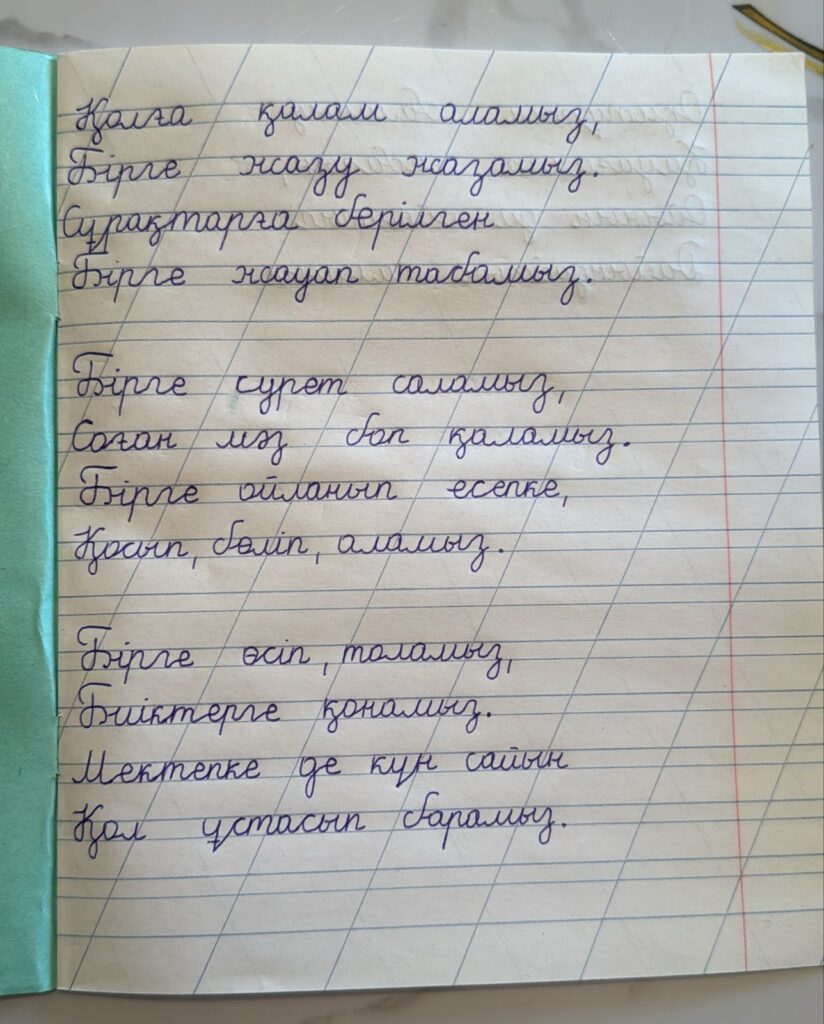 Қолға қалам аламыз,
Бірге жазу жазамыз.
Сұрақтарға берілген
Бірге жауап табамыз.
Бірге сурет саламыз,
Соған мәз боп қаламыз.
Бірге ойланып есепке,
Қосып, бөліп, аламыз.
Бірге өсіп, толамыз,
Биіктерге қонамыз.
Мектепке де күн сайын
Қол ұстасып барамыз.